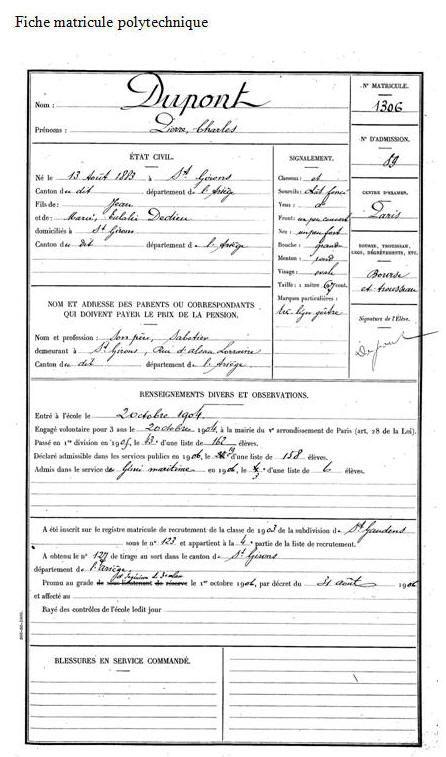 Fiche matricule polytechnique
Nom : Dupont
Prénoms : Pierre, Charles
N° MATRICULE.
1306
N° D'ADMISSION.
89
CENTRE D'EXAMEN,
Paris
BOURSE, TROUSSEAU,
LEGS, DÉGRÈVEMENTS, ETC.
Bourse
et trousseau
Signature de l'Élève.
Dupont
ÉTAT CIVIL.
Né le 13 Août 1883 à St Girons
Canton du dit département de l'Ariège
Fils de Jean
et de Marie, Eulalie Dedieu
domiciliés à St Girons
Canton du dit département d e l'Ariège
SIGNALEMENT.
Cheveux : et
Sourcils : chat. foncé
Yeux :
Front : un peu couvert
Nez : un peu fort
Bouche : grande
Menton : rond
Visage : ovale
Taille : 1 mètre 67 cent.
Marques particulières :
NOM ET ADRESSE DES PARENTS OU CORRESPONDANTS
QUI DOIVENT PAYER LE PRIX DE LA PENSION.
Nom et profession : Son père, Sabotier
demeurant à St Girons, Rue d'Alsace Lorraine
Canton du dit département de l'Ariège
RENSEIGNEMENTS DIVERS ET OBSERVATIONS.
Entré à l'école le 2 octobre 1904.
Engagé volontaire pour 3 ans le 2 octobre 1904, à la mairie du v° arrondissement de Paris (art. 28 de la Loi).
Passé en 1re division en 1905, 63° d'une liste de 162 élèves.
Déclaré admissible dans les services publics en 1906, d'une liste de 158 élèves.
Admis dans le service du Génie maritime en 1906, d'une liste de 6 élèves.
A été inscrit sur le registre matricule de recrutement de la classe de 1903 de la subdivision de St Gaudens
sous le n° 123 et appartient à la 4° partie de la liste de recrutement.
A obtenu le n° 127 de tirage au sort dans le canton de St Girons
département de l'Ariège
Promu au grade de sous-lieutenant de réserve le 1er octobre 1906, par décret du 31 août 1906
et affecté au
Rayé des contrôles de l'école ledit jour
BLESSURES EN SERVICE COMMANDÉ.